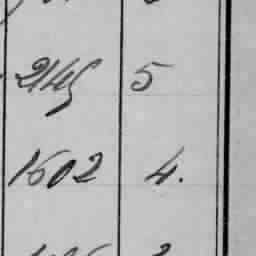 2145 5
1602 4.